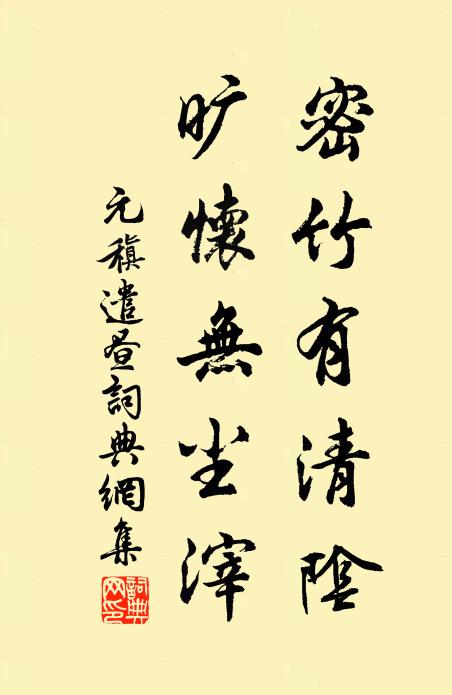 密竹有清陰
旷懷無尘滓
元稹遣昼詞典網集
詞典网印